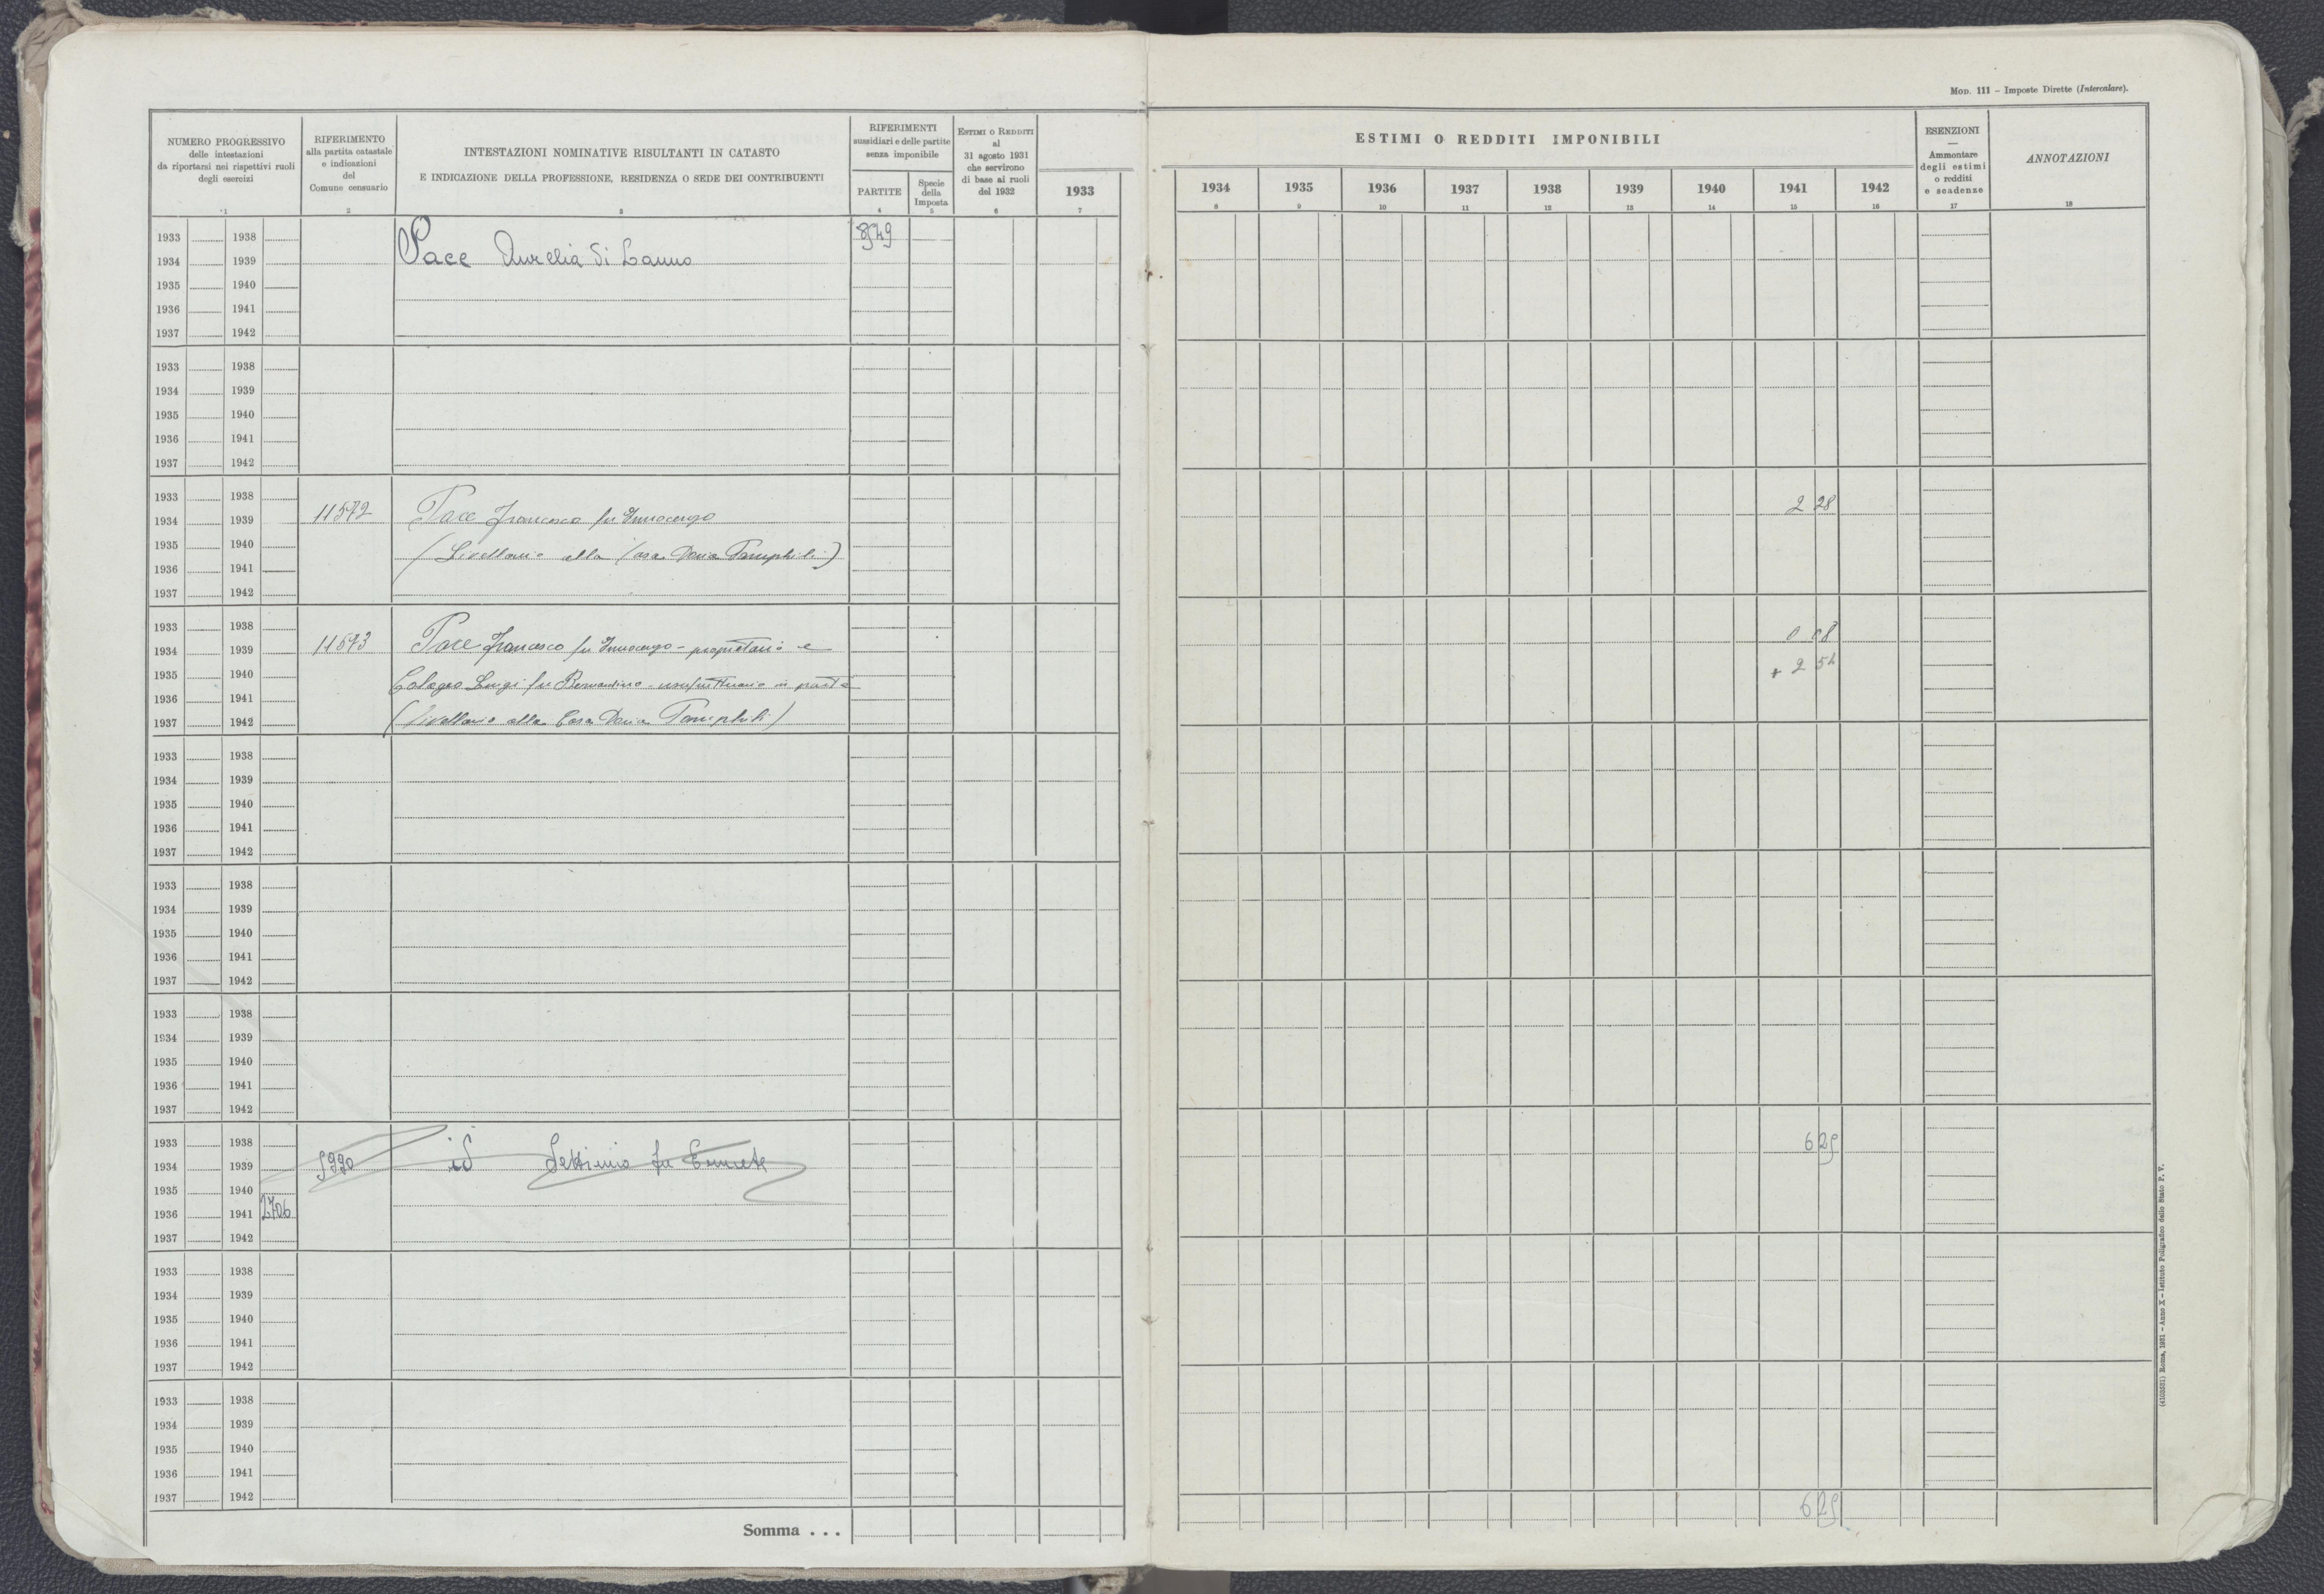 MOD. 111 – Imposte Dirette (Intercalare).
NUMERO PROGRESSIVO
delle intestazioni
da riportarsi nei rispettivi ruoli
degli esercizi
1
RIFERIMENTO
alla partita catastale
e indicazioni
del
Comune censuario
2
INTESTAZIONI NOMINATIVE RISULTANTI IN CATASTO
E INDICAZIONE DELLA PROFESSIONE, RESIDENZA O SEDE DEI CONTRIBUENTI
3
RIFERIMENTI
sussidiari e delle partite
senza imponibile
PARTITE
4
Specie
della
Imposta
5
ESTIMI O REDDITI
al
31 agosto 1931
che servirono
di base ai ruoli
del 1932
6
1933
7
ESTIMI O REDDITI IMPONIBILI
1934 1935 1936 1937 1938 1939 1940 1941 1942
8 9 10 11 12 13 14 15 16
ESENZIONI
—
Ammontare
degli estimi
o redditi
e scadenze
17
ANNOTAZIONI
18
1933 1938 8549
1934 1939 Pace Aurelia di Lanno
1935 1940
1936 1941
1937 1942
1933 1938
1934 1939
1935 1940
1936 1941
1937 1942
1933 1938 2 28
1934 1939 11572 Pace Francesco fu Innocenzo
1935 1940 (Livellario alla Casa Doria Pamphili)
1936 1941
1937 1942
1933 1938 0 08
1934 1939 11573 Pace Francesco fu Innocenzo – proprietario e
1935 1940 + 2 54
1936 1941 Luigi fu Bernardino – usufruttuario in parte
1937 1942 (Livellario alla Casa Doria Pamphili)
1933 1938
1934 1939
1935 1940
1936 1941
1937 1942
1933 1938
1934 1939
1935 1940
1936 1941
1937 1942
1933 1938
1934 1939
1935 1940
1936 1941
1937 1942
1933 1938 6 25
1934 1939 5990 id Settimio fu
1935 1940
1936 1941 2706
1937 1942
1933 1938
1934 1939
1935 1940
1936 1941
1937 1942
1933 1938
1934 1939
1935 1940
1936 1941
1937 1942
Somma . . . 6 25
(4103531) Roma, 1931 – Anno X – Istituto Poligrafico dello Stato P. V.